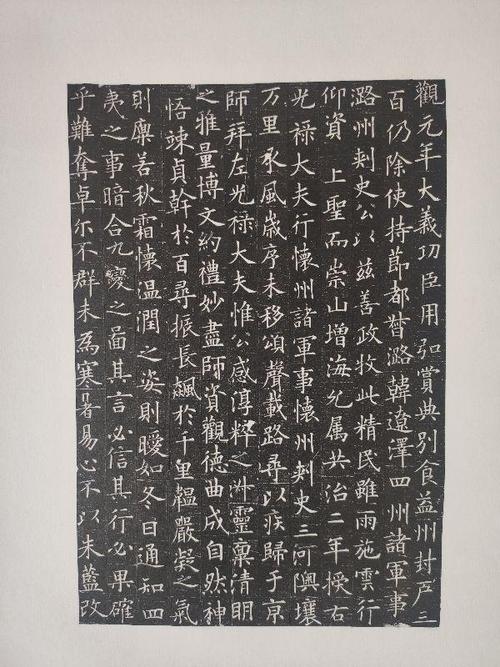 觀元年大義功臣用弘賞典別食益州封戶三
百仍除使持節都督潞韓遼澤四州諸軍事
潞州刺史公以兹善政牧此精民雖雨施雲行
仰資 上聖而崇山增海允属共治二年授右
光禄大夫行懷州諸軍事懷州刺史三河隩壤
万里承風歲序未移頌聲載路尋以疾歸于京
師拜左光禄大夫惟公感淳粹之淋靈禀清明
之雅量博文約禮妙盡師資觀德曲成自然神
悟竦貞幹於百尋振長飆於千里韞嚴凝之氣
則廩若秋霜懷温潤之姿則曖如冬日通知四
夷之事暗合九變之啚其言必信其行必果確
乎難奪卓尔不群未為寒暑易心不以朱藍改